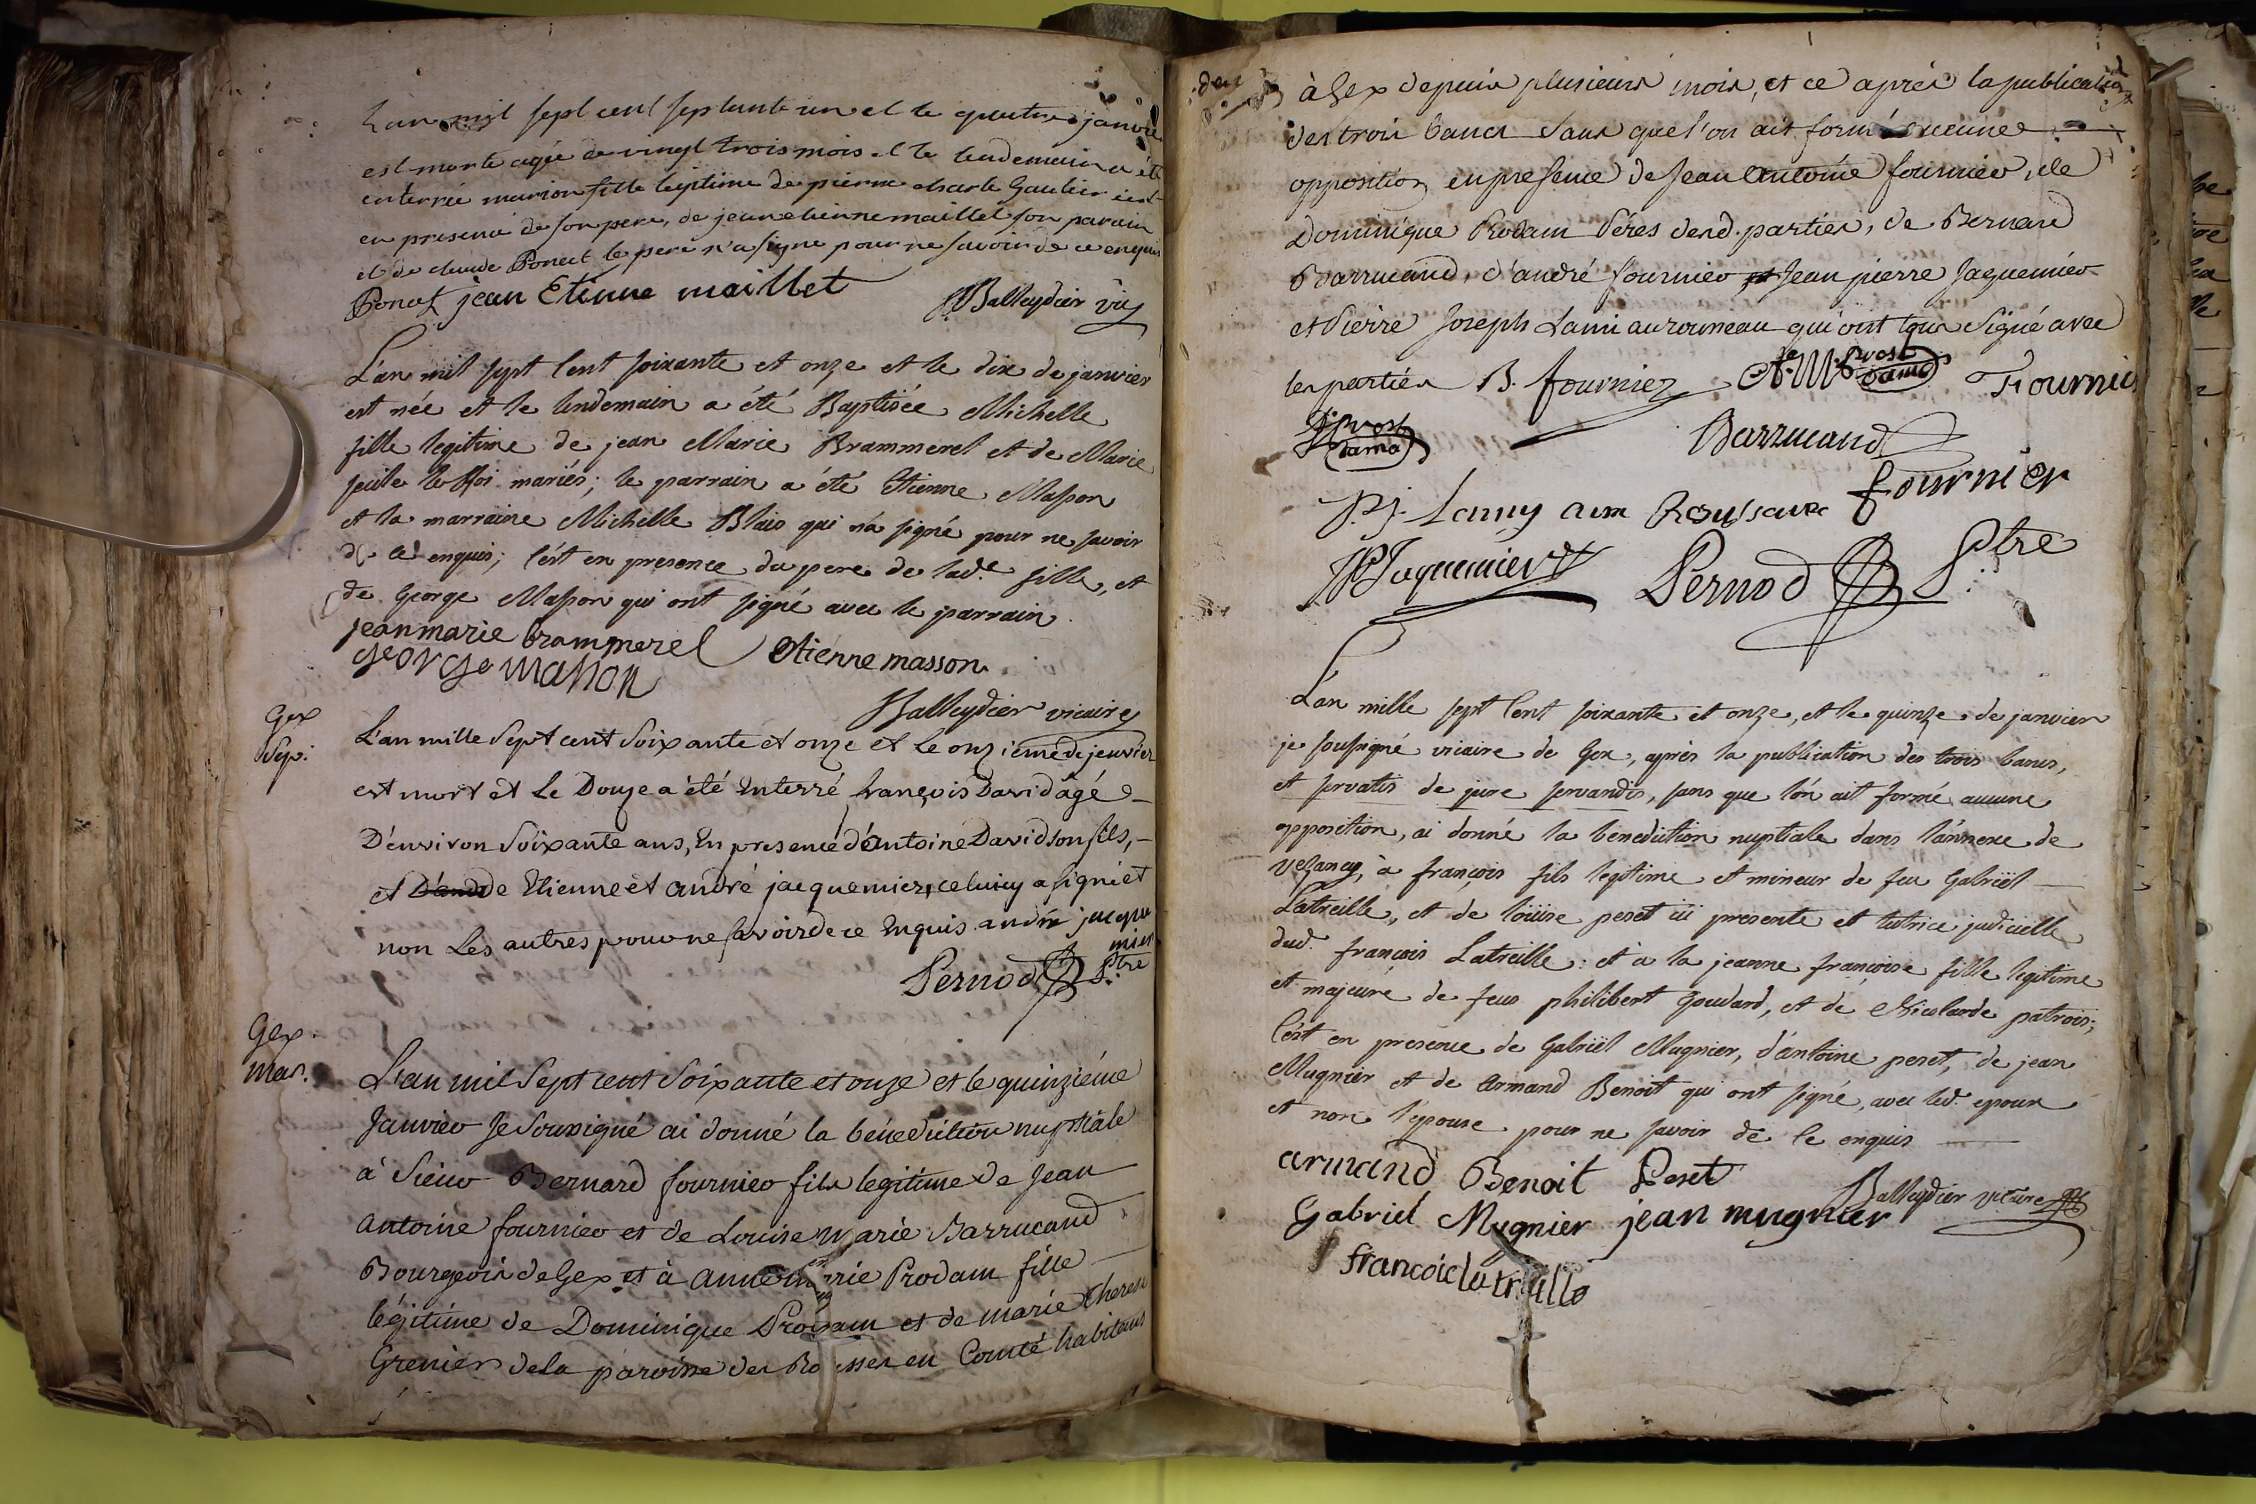 L'an mil sept cent septante un et le quatre janvier
est morte agée de vingt trois mois et le lendemain a été
enterrée marion fille legitime de pierre charle Gautier
en presence de son pere, de jean etienne maillet son parain
et de claude Ponct le pere n'a signe pour ne savoir de ce enquis
Ponct jean Etienne maillet
Balleydier vic
L'an mil sept Cent soixante et onze et le dix de janvier
est née et le lendemain a été Baptisée Michelle
fille legitime de jean Marie Brammerel et de Marie
le Roi mariés; le parrain a été Etienne Masson
et la marraine Michelle Blais qui n'a signé pour ne savoir
de ce enquis; C'est en presence du pere de lad.e fille, et
de George Masson qui ont signé avec le parrain.
jean marie brammerel Etiénne masson
George masson
Balleydier vicaire
Gex
Sep:
L'an mille Sept cent Soixante et onze et Le onziéme de jenvier
est mort et Le Douze a été Enterré françois David âgé
D'environ Soixante ans, En presence d'Antoine David son fils,
et D'and de Etienne et André jacquemier, celuicy a signé et
non Les autres pour ne savoir de ce Enquis andré jacque
mier
Pernod Ptre
Gex.
Mar.
L'an mil Sept cent Soixante et onze et le quinziéme
Janvier Je Soussigné ai donné la bénédiction nuptiale
à Sieur Bernard fournier fils legitime de Jean
Antoine fournier et de Louise Marie Barrucand
Bourgeois de Gex et à Anne Marie Prodam fille
légitime de Dominique Prodam et de Marie therese
Grenier de la paroisse des Rousses en Comté habitans
à Gex depuis plusieurs mois, et ce après la publication
des trois bancs sans que l'on ait formé aucune
opposition en presence de Jean Antoine fournier, de
Dominique Prodam Péres desd. parties, de Bernard
Barrucand, d'andré fournier et Jean pierre Jaquemier
et Pierre Joseph Lami au rousseau qui ont tous Signé avec
les parties B. fournier A. M. Prost dama Fournier
Prost
dama
Barrucand
P. j. Lamy aux Rousseaux fournier
JP Jaquemier Pernod Ptre
L'an mille sept Cent soixante et onze, et le quinze de janvier
je soussigné vicaire de Gex, après la publication des trois bancs,
et servatis de jure servandis, sans que l'on ait formé aucune
opposition, ai donné la benediction nuptiale dans l'annexe de
Vesancy, à françois fils legitime et mineur de feu Gabriël
Latreille, et de loüise peset ici presente et tutrice judicielle
dud. françois Latreille: et à la jeanne françoise fille legitime
et majeure de feus philibert goudard, et de Nicolarde patrois;
C'est en presence de Gabriël Mugnier, d'antoine peset, de jean
Mugnier et de Armand Benoit qui ont signé, avec led. epoux
et non l'épouse pour ne savoir de Ce enquis
armand Benoit Peset
Balleydier vicaire
Gabriel Mugnier jean mugnier
francoic latreille